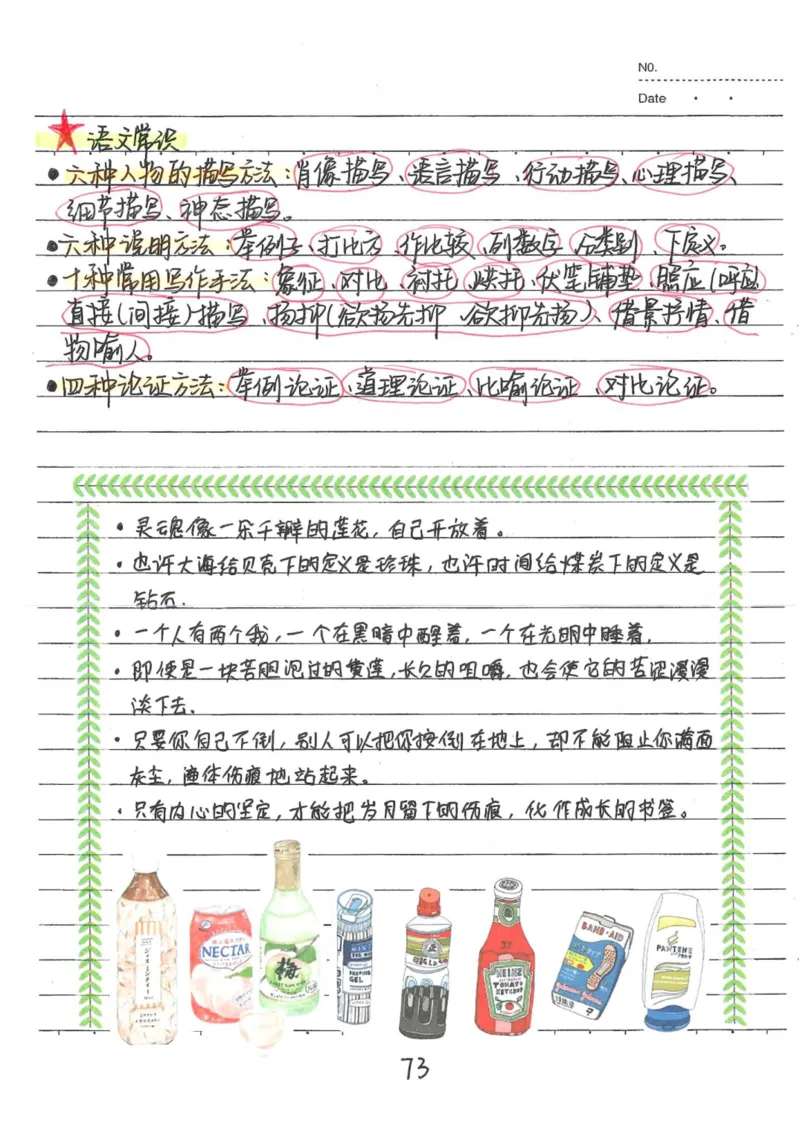 NO.
Date
语文常识
•六种人物的描写方法:肖像描写、语言描写、行动描写、心理描写、
细节描写、神态描写。
•六种说明方法:举例子、打比方、作比较、列数字、分类别、下定义。
•十种常用写作手法:象征、对比、衬托、烘托、伏笔铺垫、照应(呼应
直接(间接)描写、扬抑(欲扬先抑、欲抑先扬)、借景抒情、借
物喻人。
•四种论证方法:举例论证、道理论证、比喻论证、对比论证。
•灵魂像一朵千瓣的莲花,自己开放着。
•也许大海给贝壳下的定义是珍珠,也许时间给煤炭下的定义是
钻石.
•一个人有两个我,一个在黑暗中醒着,一个在光明中睡着.
•即使是一块苦胆泡过的黄莲,长久的咀嚼,也会使它的苦涩漫漫
淡下去.
•只要你自己不倒,别人可以把你按倒在地上,却不能阻止你满面
灰尘,遍体伤痕地站起来。
•只有内心的坚定,才能把岁月留下的伤痕,化作成长的书签。
NECTAR
梅
GEL
57
HEINZ
TOMATO
KETCHUP
BAND-AID
PANTENE
73